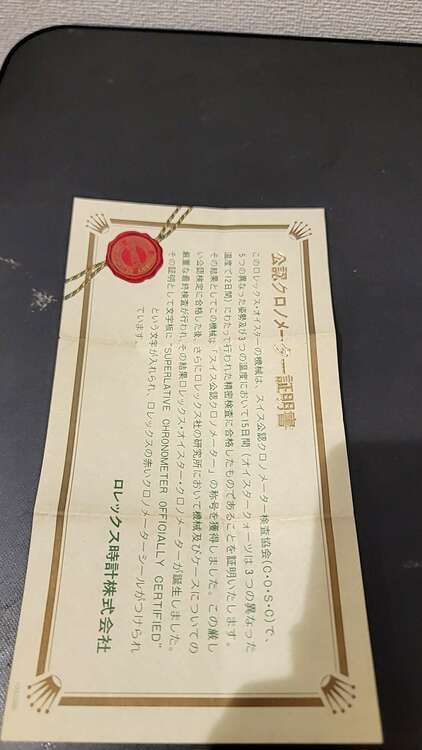 公認クロノメーター証明書
このロレックス・オイスターの機械は、スイス公認クロノメーター検査協会(C・O・S・C)で、
5つの異なった姿勢及び3つの温度において15日間(オイスタークォーツは3つの異なった
温度で12日間)にわたって行われた精密検査に合格したものであることを証明いたします。
その結果としてこの機械は「スイス公認クロノメーター」の称号を獲得しました。この厳し
い公認検定に合格した後、さらにロレックス社の研究所において機械及びケースについての
厳重な最終検査が行われ、その結果ロレックス・オイスター・クロノメーターが誕生しました。
その証明として文字板に"SUPERLATIVE CHRONOMETER OFFICIALLY CERTIFIED"
という文字が入れられ、ロレックスの赤いクロノメーターシールがつけられ
ています。
ロレックス時計株式会社